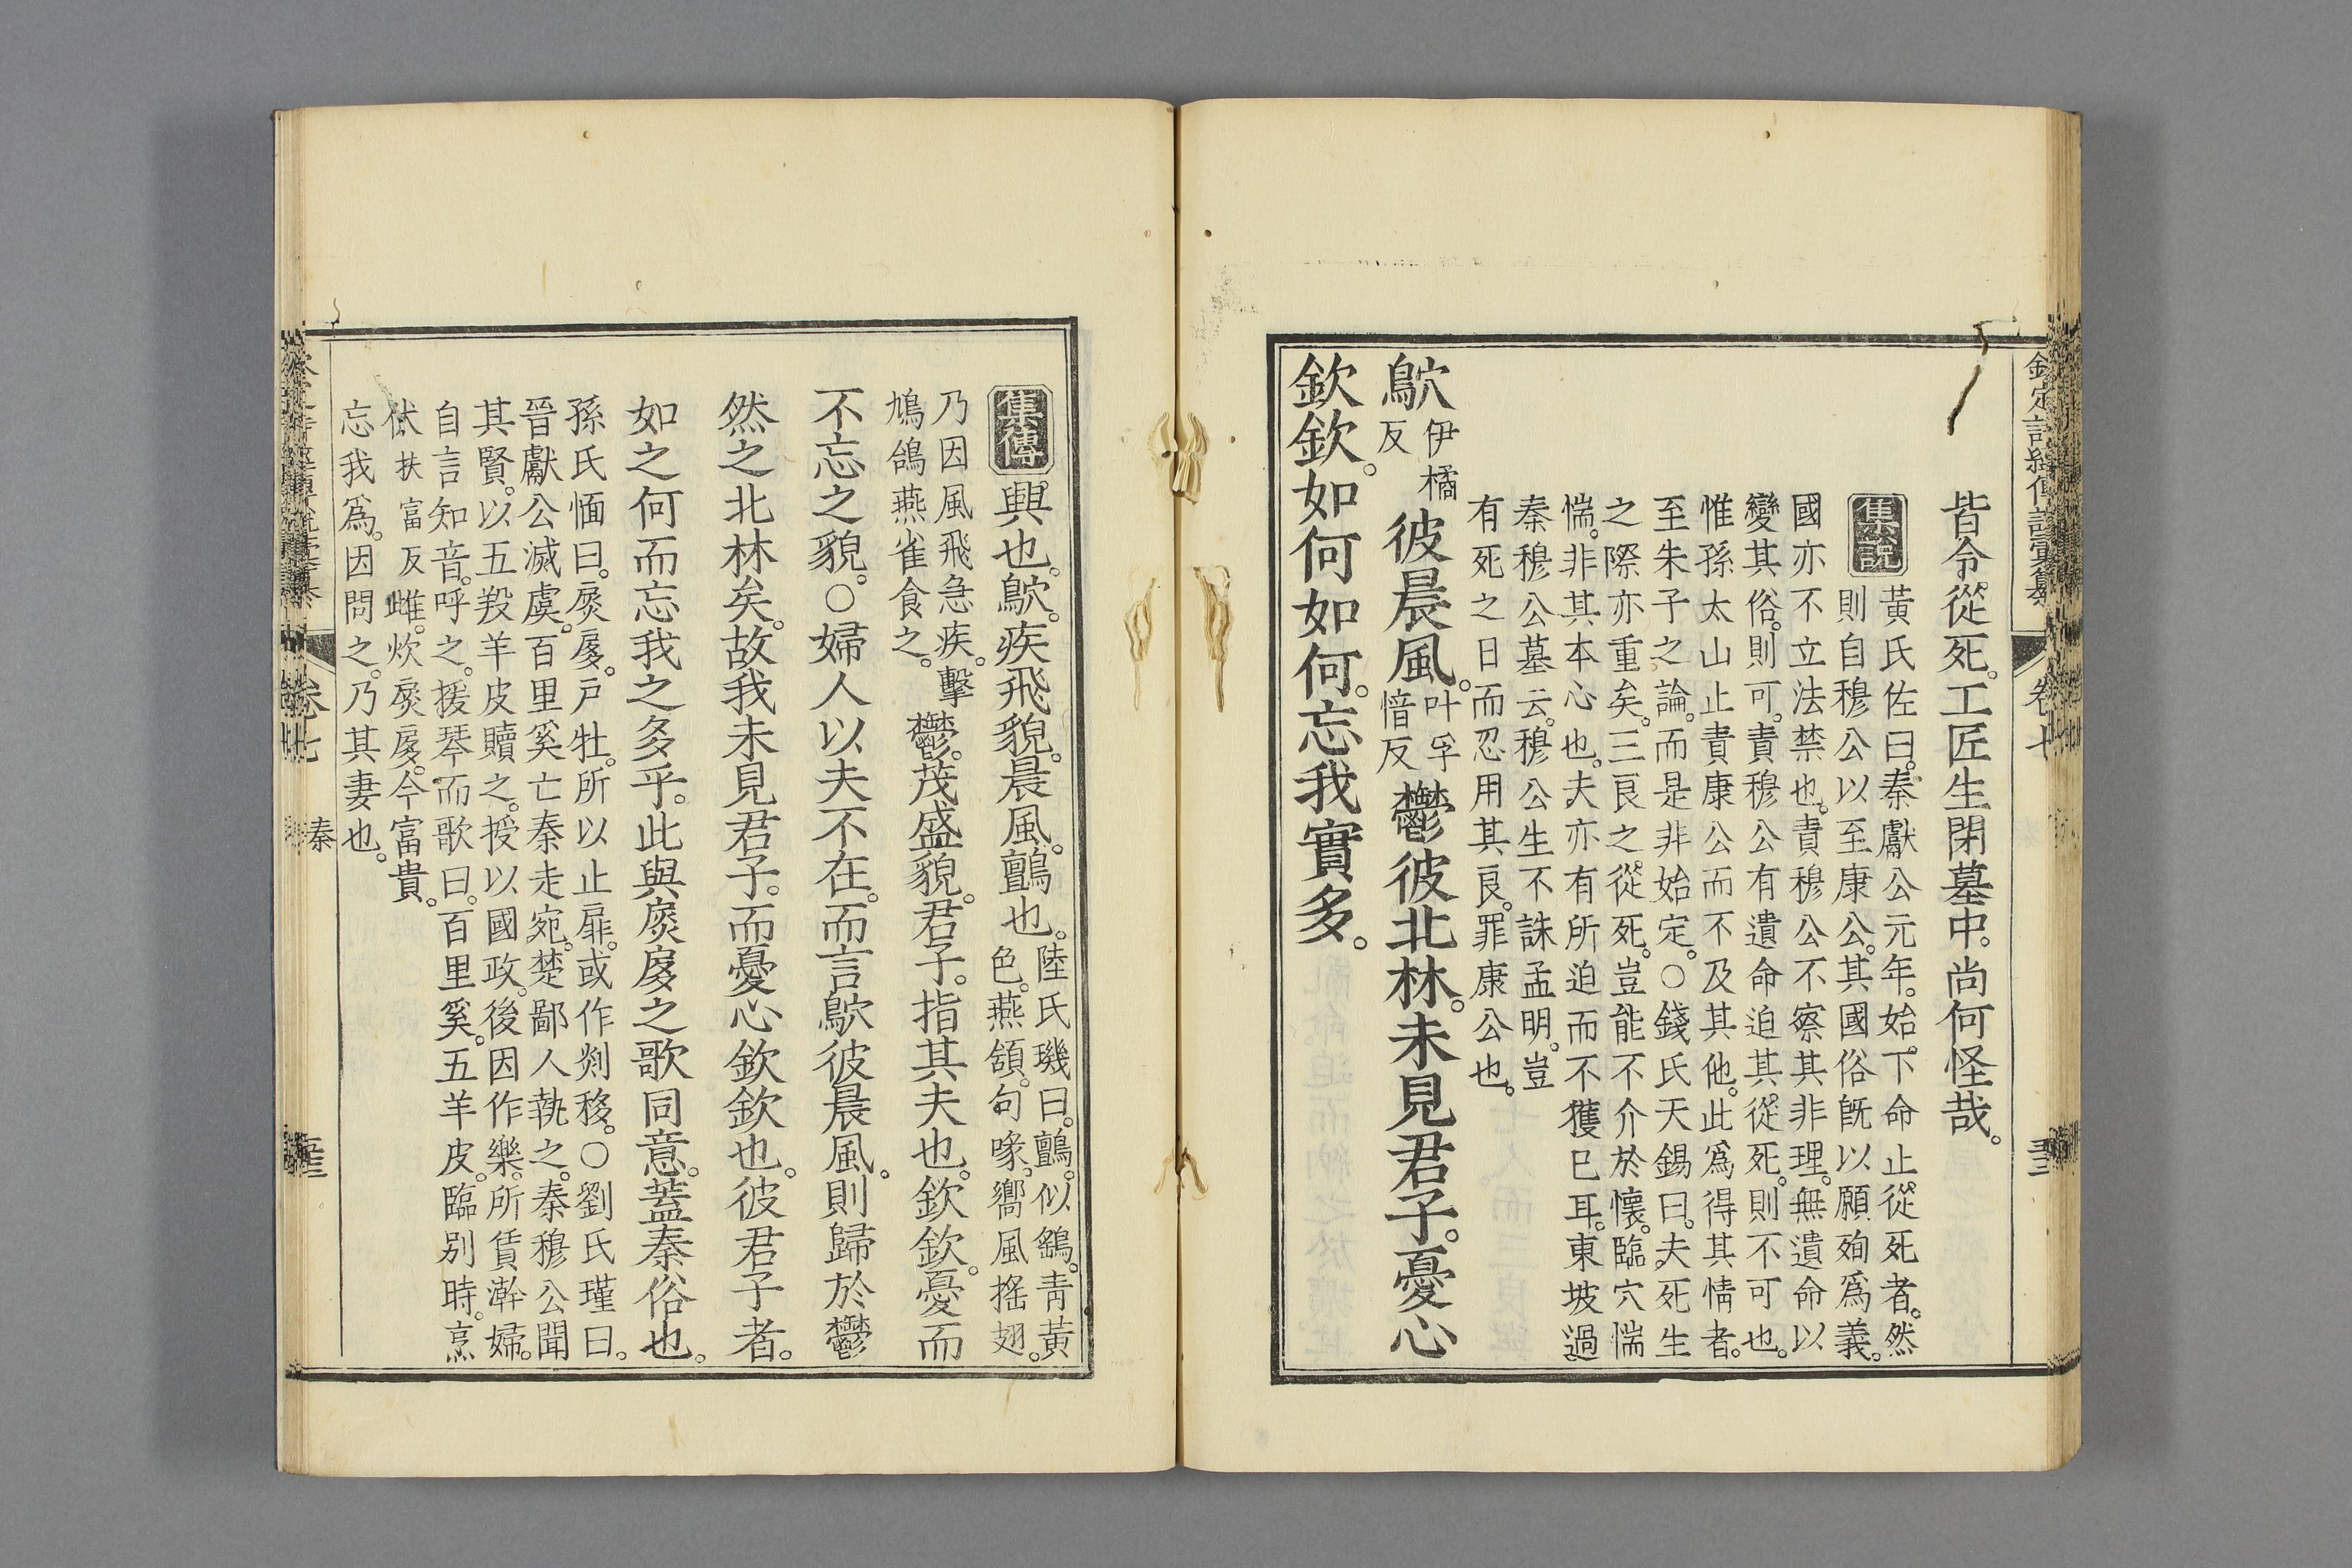 欽定詩經傳說彙纂 卷七
皆令從死。工匠生閉墓中。尚何怪哉。
集說
黃氏佐曰。秦獻公元年。始下命止從死者。然
則自穆公以至康公。其國俗旣以願殉爲義。
國亦不立法禁也。責穆公不察其非理。無遺命以
變其俗。則可。責穆公有遺命迫其從死。則不可也。
惟孫太山止責康公而不及其他。此爲得其情者。
至朱子之論。而是非始定。○錢氏天錫曰。夫死生
之際亦重矣。三良之從死。豈能不介於懷。臨穴惴
惴。非其本心也。夫亦有所迫而不獲已耳。東坡過
秦穆公墓云。穆公生不誅孟明。豈
有死之日而忍用其良。罪康公也。
鴥伊橘反彼晨風。叶孚愔反鬱彼北林。未見君子。憂心
欽欽。如何如何。忘我實多。
集傳
興也。鴥。疾飛貌。晨風。鸇也。陸氏璣曰。鸇。似鷂。靑黃
色。燕頷。句喙。嚮風搖翅。
乃因風飛急疾。擊
鳩鴿燕雀食之。
鬱。茂盛貌。君子。指其夫也。欽欽。憂而
不忘之貌。○婦人以夫不在。而言鴥彼晨風。則歸於鬱
然之北林矣。故我未見君子。而憂心欽欽也。彼君子者。
如之何而忘我之多乎。此與扊扅之歌同意。蓋秦俗也。
孫氏愐曰。扊扅。戶牡。所以止扉。或作剡移。○劉氏瑾曰。
晉獻公滅虞。百里奚亡秦走宛。楚鄙人執之。秦穆公聞
其賢。以五羖羊皮贖之。授以國政。後因作樂。所賃澣婦。
自言知音。呼之。援琴而歌曰。百里奚。五羊皮。臨別時。烹
伏扶富反雌。炊扊扅。今富貴。
忘我爲。因問之。乃其妻也。
卷七
秦